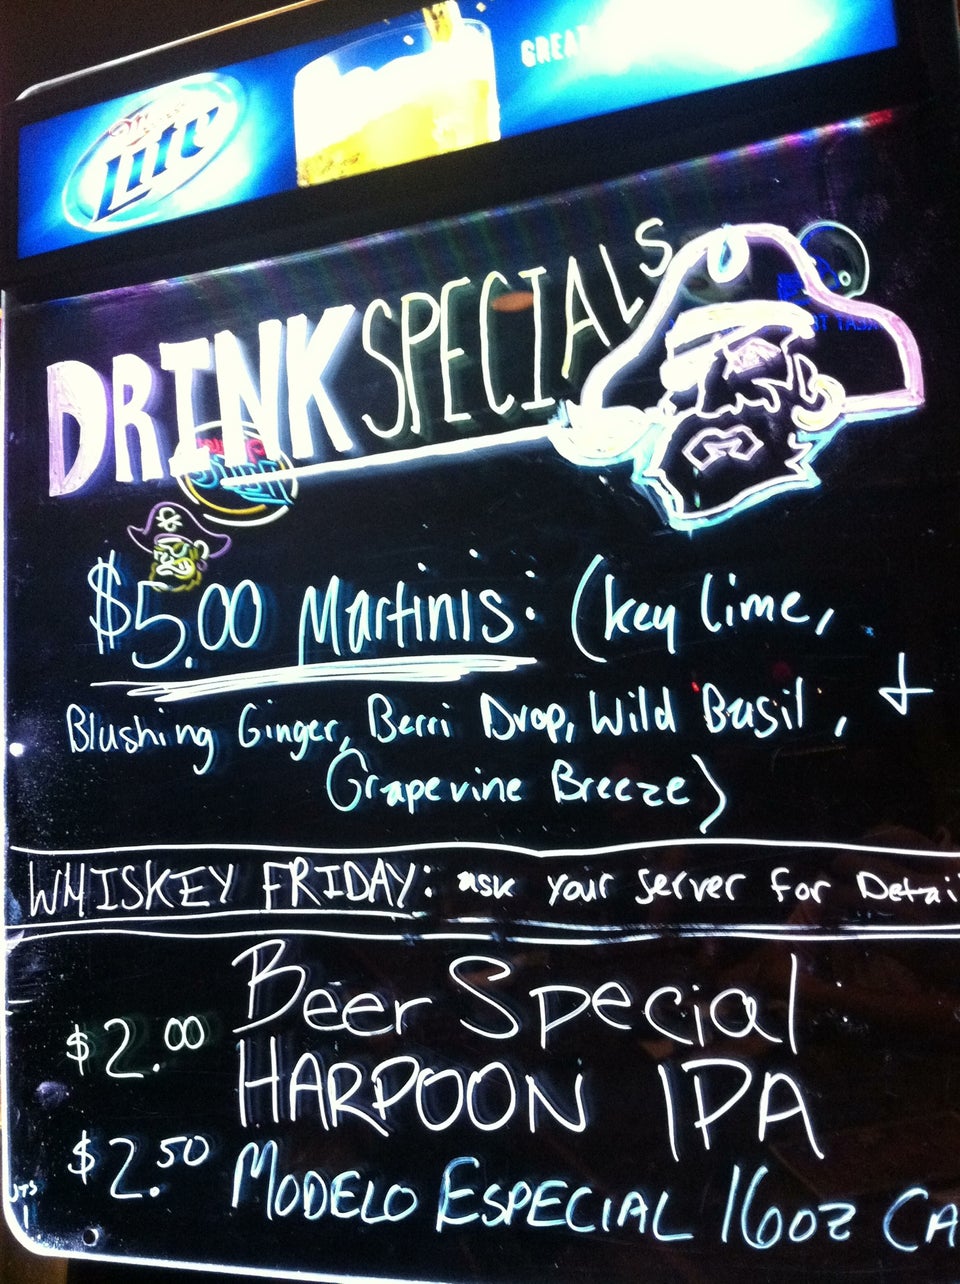 Miller
Lite
GREA
DRINK SPECIALS
$5.00 Martinis: (key lime,
Blushing Ginger, Berri Drop, Wild Basil, +
Grapevine Breeze)
WHISKEY FRIDAY: ask your server for Detai
Beer Special:
$2.00 HARPOON IPA
$2.50 MODELO ESPECIAL 16oz CA